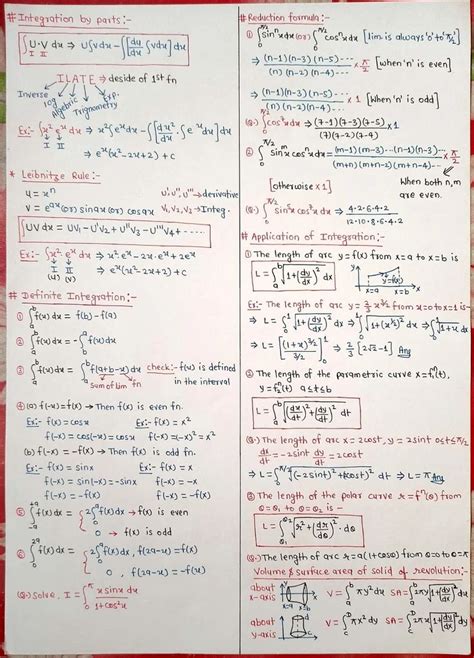 # Integration by parts :-
∫U·V dx ⇒ U∫vdx - ∫[du/dx ∫vdx] dx
I II
ILATE → deside of 1st fn
Inverse log Algebric Trignometry Exp.
Ex:- ∫x² eˣ dx ⇒ x²∫eˣdx - ∫[dx²/dx · ∫eˣdx] dx
I II
⇒ eˣ(x²-2x+2) + c
* Leibnitze Rule :-
u = xⁿ u', u'', u''' → derivative
V = eᵃˣ (or) sinax (or) cosax V₁, V₂, V₃ → Integ.
∫UV dx = UV₁ - U'V₂ + U''V₃ - U'''V₄ + ·····
Ex:- ∫x² eˣ dx ⇒ x²eˣ - 2x·eˣ + 2eˣ
I II
(U) (V) ⇒ eˣ(x²-2x+2) + c
# Definite Integration :-
① ∫ₐᵇ f(x) dx = f(b) - f(a)
② ∫ₐᵇ f(x) dx = -∫ᵇₐ f(x) dx
③ ∫ₐᵇ f(x) dx = ∫ₐᵇ f(a+b-x) dx check :- f(x) is defined
sum of lim fn in the interval
④ (a) f(-x) = f(x) → Then f(x) is even fn.
Ex:- f(x) = cosx Ex:- f(x) = x²
f(-x) = cos(-x) = cosx f(-x) = (-x)² = x²
(b) f(-x) = -f(x) → Then f(x) is odd fn.
Ex:- f(x) = sinx Ex:- f(x) = x
f(-x) = sin(-x) = -sinx f(-x) = -x
f(-x) = -f(x) f(-x) = -f(x)
⑤ ∫₋ₐ⁺ᵃ f(x) dx = { 2∫₀ᵃ f(x) dx → f(x) is even
0 → f(x) is odd
⑥ ∫₀²ᵃ f(x) dx = { 2∫₀ᵃ f(x) dx, f(2a-x) = f(x)
0, f(2a-x) = -f(x)
Q:- Solve, I = ∫₀^π x sinx dx / 1+cos²x
# Reduction formula :-
① ∫₀^π/2 sinⁿx dx (or) ∫₀^π/2 cosⁿx dx [lim. is always '0' to 'π/2']
⇒ (n-1)(n-3)(n-5)···· / (n)(n-2)(n-4)···· × π/2 [When 'n' is even]
⇒ (n-1)(n-3)(n-5)···· / (n)(n-2)(n-4)···· × 1 [When 'n' is odd]
Q:) ∫₀^π/2 cos⁷x dx ⇒ (7-1)(7-3)(7-5) / (7)(7-2)(7-4) × 1
② ∫₀^π/2 sinᵐx cosⁿx dx = (m-1)(m-3)···(n-1)(n-3)···· / (m+n)(m+n-2)(m+n-4)···· × π/2
[otherwise × 1] When both n,m
are even.
Q:) ∫₀^π/2 sin⁵x cos⁷x dx ⇒ 4·2·6·4·2 / 12·10·8·6·4·2
# Application of Integration :-
① The length of arc y = f(x) from x=a to x=b is
L = ∫ₐᵇ √1+(dy/dx)² dx
y y=f(x) x=a x=b x
Ex:- The length of arc y = 2/3 x^3/2 from x=0 to x=1 is-
⇒ L = ∫₀¹ √1+(dy/dx)² dx ⇒ ∫₀¹ √1+(x^1/2)² dx ⇒ ∫₀¹ √1+x dx
⇒ L = [(1+x)^3/2 / 3/2]₀¹ ⇒ 2/3 [2√2-1] Ans
② The length of the parametric curve x = f₁ⁿ(t),
y = f₂ⁿ(t) a≤t≤b
L = ∫ₐᵇ √(dx/dt)²+(dy/dt)² dt
Q:-) The length of arc x = 2cost, y = 2sint 0≤t≤π/2
dx/dt = -2sint dy/dt = 2cost
⇒ L = ∫₀^π/2 √(-2sint)²+(2cost)² dt ⇒ L = π Ans
③ The length of the polar curve r = fⁿ(θ) from
θ = θ₁ to θ = θ₂ is -
L = ∫θ₁^θ₂ √r²+(dr/dθ)² · dθ
Q:-) The length of arc r = a(1+cosθ) from θ=0 to θ=π
Volume & surface area of solid of revolution:-
about x-axis y x=a x=b x V = ∫ₐᵇ πy² dx SA = ∫ₐᵇ 2πy √1+(dy/dx)² dx
about y-axis d c V = ∫c^D πx² dy SA = ∫c^D 2πx √1+(dx/dy)² dy